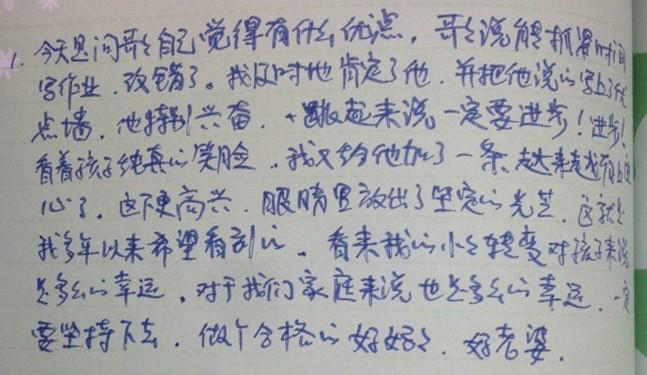 1. 今天又问哥哥自己觉得有什么优点，哥哥说能抓紧时间
写作业，改错了。我及时地肯定了他，并把他说的写上了优
点墙，他特别兴奋，跳起来说一定要进步！进步！
看着孩子纯真的笑脸，我又给他加了一条，越来越有上进
心了，这下更高兴，眼睛里放出了坚定的光芒，这就是
我多年以来希望看到的，看来我的小小转变对孩子来说
是多么的幸运，对于我们家庭来说也是多么的幸运，一定
要坚持下去，做个合格的好妈妈，好老婆。